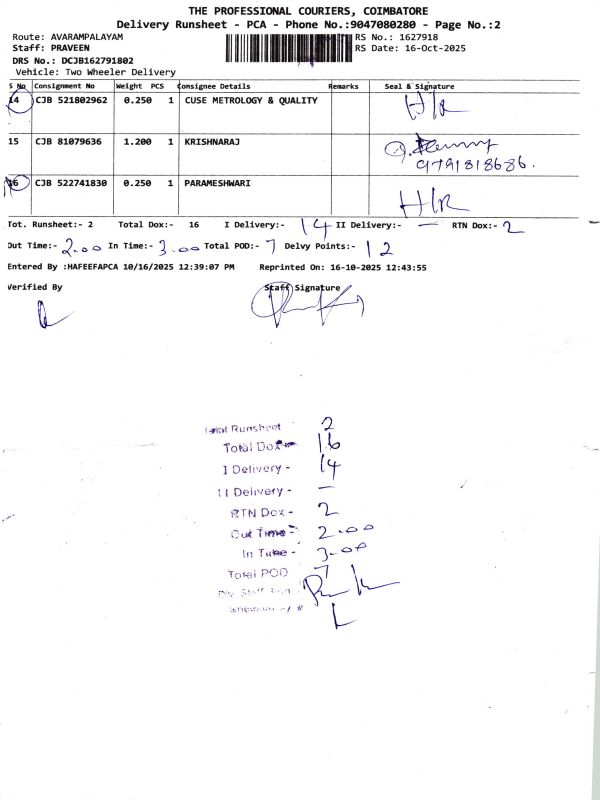 THE PROFESSIONAL COURIERS, COIMBATORE
Delivery Runsheet - PCA - Phone No.:9047080280 - Page No.:2
Route: AVARAMPALAYAM RS No.: 1627918
Staff: PRAVEEN RS Date: 16-Oct-2025
DRS No.: DCJB162791802
Vehicle: Two Wheeler Delivery
S No Consignment No Weight PCS Consignee Details Remarks Seal & Signature
14 CJB 521802962 0.250 1 CUSE METROLOGY & QUALITY H/R
15 CJB 81079636 1.200 1 KRISHNARAJ
9791818686.
16 CJB 522741830 0.250 1 PARAMESHWARI H/R
Tot. Runsheet:- 2 Total Dox:- 16 I Delivery:- 14 II Delivery:- — RTN Dox:- 2
Out Time:- 2.00 In Time:- 3.00 Total POD:- 7 Delvy Points:- 12
Entered By :HAFEEFAPCA 10/16/2025 12:39:07 PM Reprinted On: 16-10-2025 12:43:55
Verified By Staff Signature
Total Runsheet 2
Total Dox- 16
I Delivery - 14
II Delivery - —
RTN Dox - 2
Out Time - 2.00
In Time - 3.00
Total POD 7